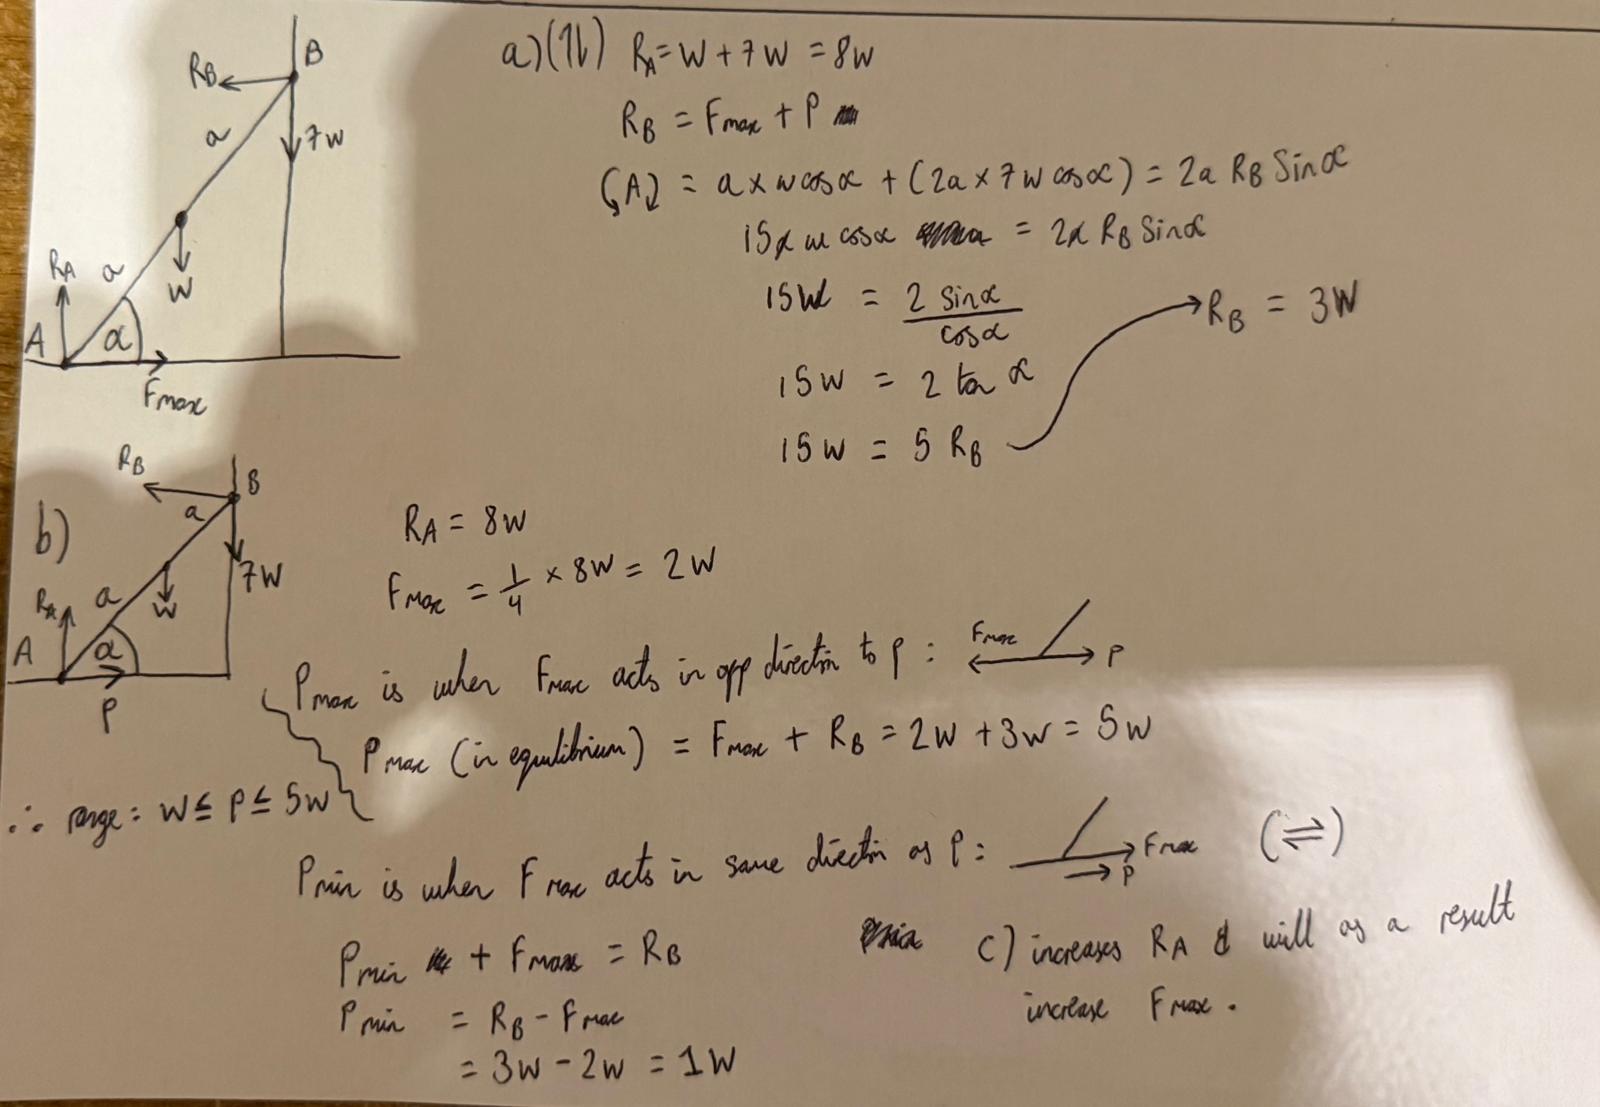 B
R_B
a
7W
a
R_A
W
A
α
Fmax
a) (1b) R_A = W + 7W = 8W
R_B = Fmax + P
(A) = a × w cosα + (2a × 7w cosα) = 2a R_B Sinα
15a w cosα = 2a R_B Sinα
15W = 2 sinα / cosα
R_B = 3W
15W = 2 tan α
15W = 5 R_B
b)
R_B
B
a
a
7W
R_A
W
A
α
P
R_A = 8W
Fmax = 1/4 × 8W = 2W
Pmax is when Fmax acts in opp direction to P : Fmax P
Pmax (in equilibrium) = Fmax + R_B = 2W + 3W = 5W
∴ range: W ≤ P ≤ 5W
Pmin is when Fmax acts in same direction as P: Fmax P (⇌)
Pmin + Fmax = R_B
Pmin = R_B - Fmax
= 3W - 2W = 1W
C) increases R_A & will as a result
increase Fmax.